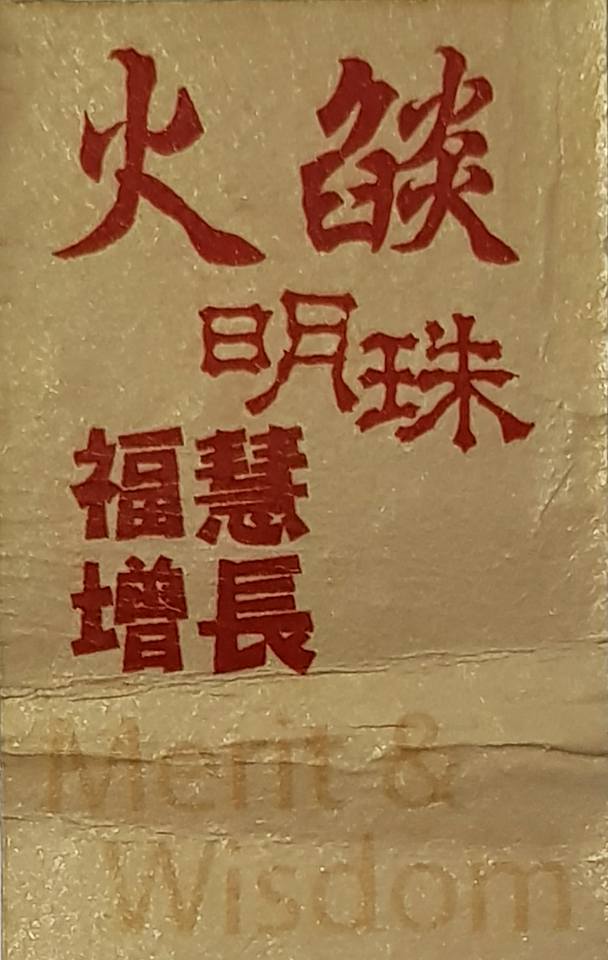 火燄
明珠
福慧
增長
Merit &
Wisdom